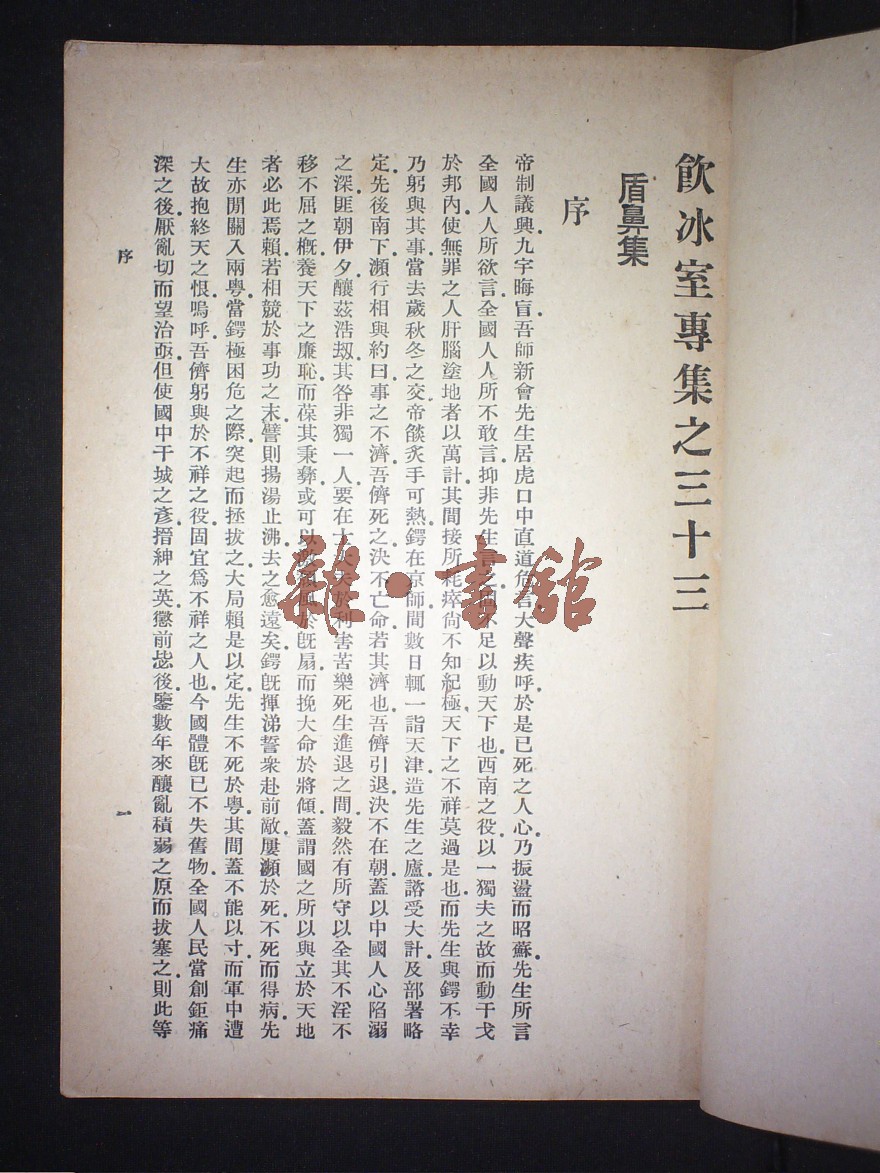 飲冰室專集之三十三
盾鼻集
序
帝制議興九宇晦盲吾師新會先生居虎口中直道危言大聲疾呼於是已死之人心乃振盪而昭蘇先生所言
全國人人所欲言全國人人所不敢言抑非先生言之固不足以動天下也西南之役以一獨夫之故而動干戈
於邦內使無罪之人肝腦塗地者以萬計其間接所耗瘁尙不知紀極天下之不祥莫過是也而先生與鍔不幸
乃躬與其事當去歲秋冬之交帝燄炙手可熱鍔在京師間數日輒一詣天津造先生之廬諮受大計及部署略
定先後南下瀕行相與約曰事之不濟吾儕死之決不亡命若其濟也吾儕引退決不在朝蓋以中國人心陷溺
之深匪朝伊夕釀茲浩刼其咎非獨一人要在士大夫於利害苦樂死生進退之間毅然有所守以全其不淫不
移不屈之概養天下之廉恥而葆其秉彝或可以激頹風於旣扇而挽大命於將傾蓋謂國之所以與立於天地
者必此焉賴若相競於事功之末譬則揚湯止沸去之愈遠矣鍔旣揮涕誓衆赴前敵屢瀕於死不死而得病先
生亦間關入兩粵當鍔極困危之際突起而拯拔之大局賴是以定先生不死於粵其間蓋不能以寸而軍中遭
大故抱終天之恨嗚呼吾儕躬與於不祥之役固宜爲不祥之人也今國體旣已不失舊物全國人民當創鉅痛
深之後厭亂切而望治亟但使國中干城之彥搢紳之英懲前毖後鑒數年來釀亂積弱之原而拔塞之則此等
序
一
雜·書館